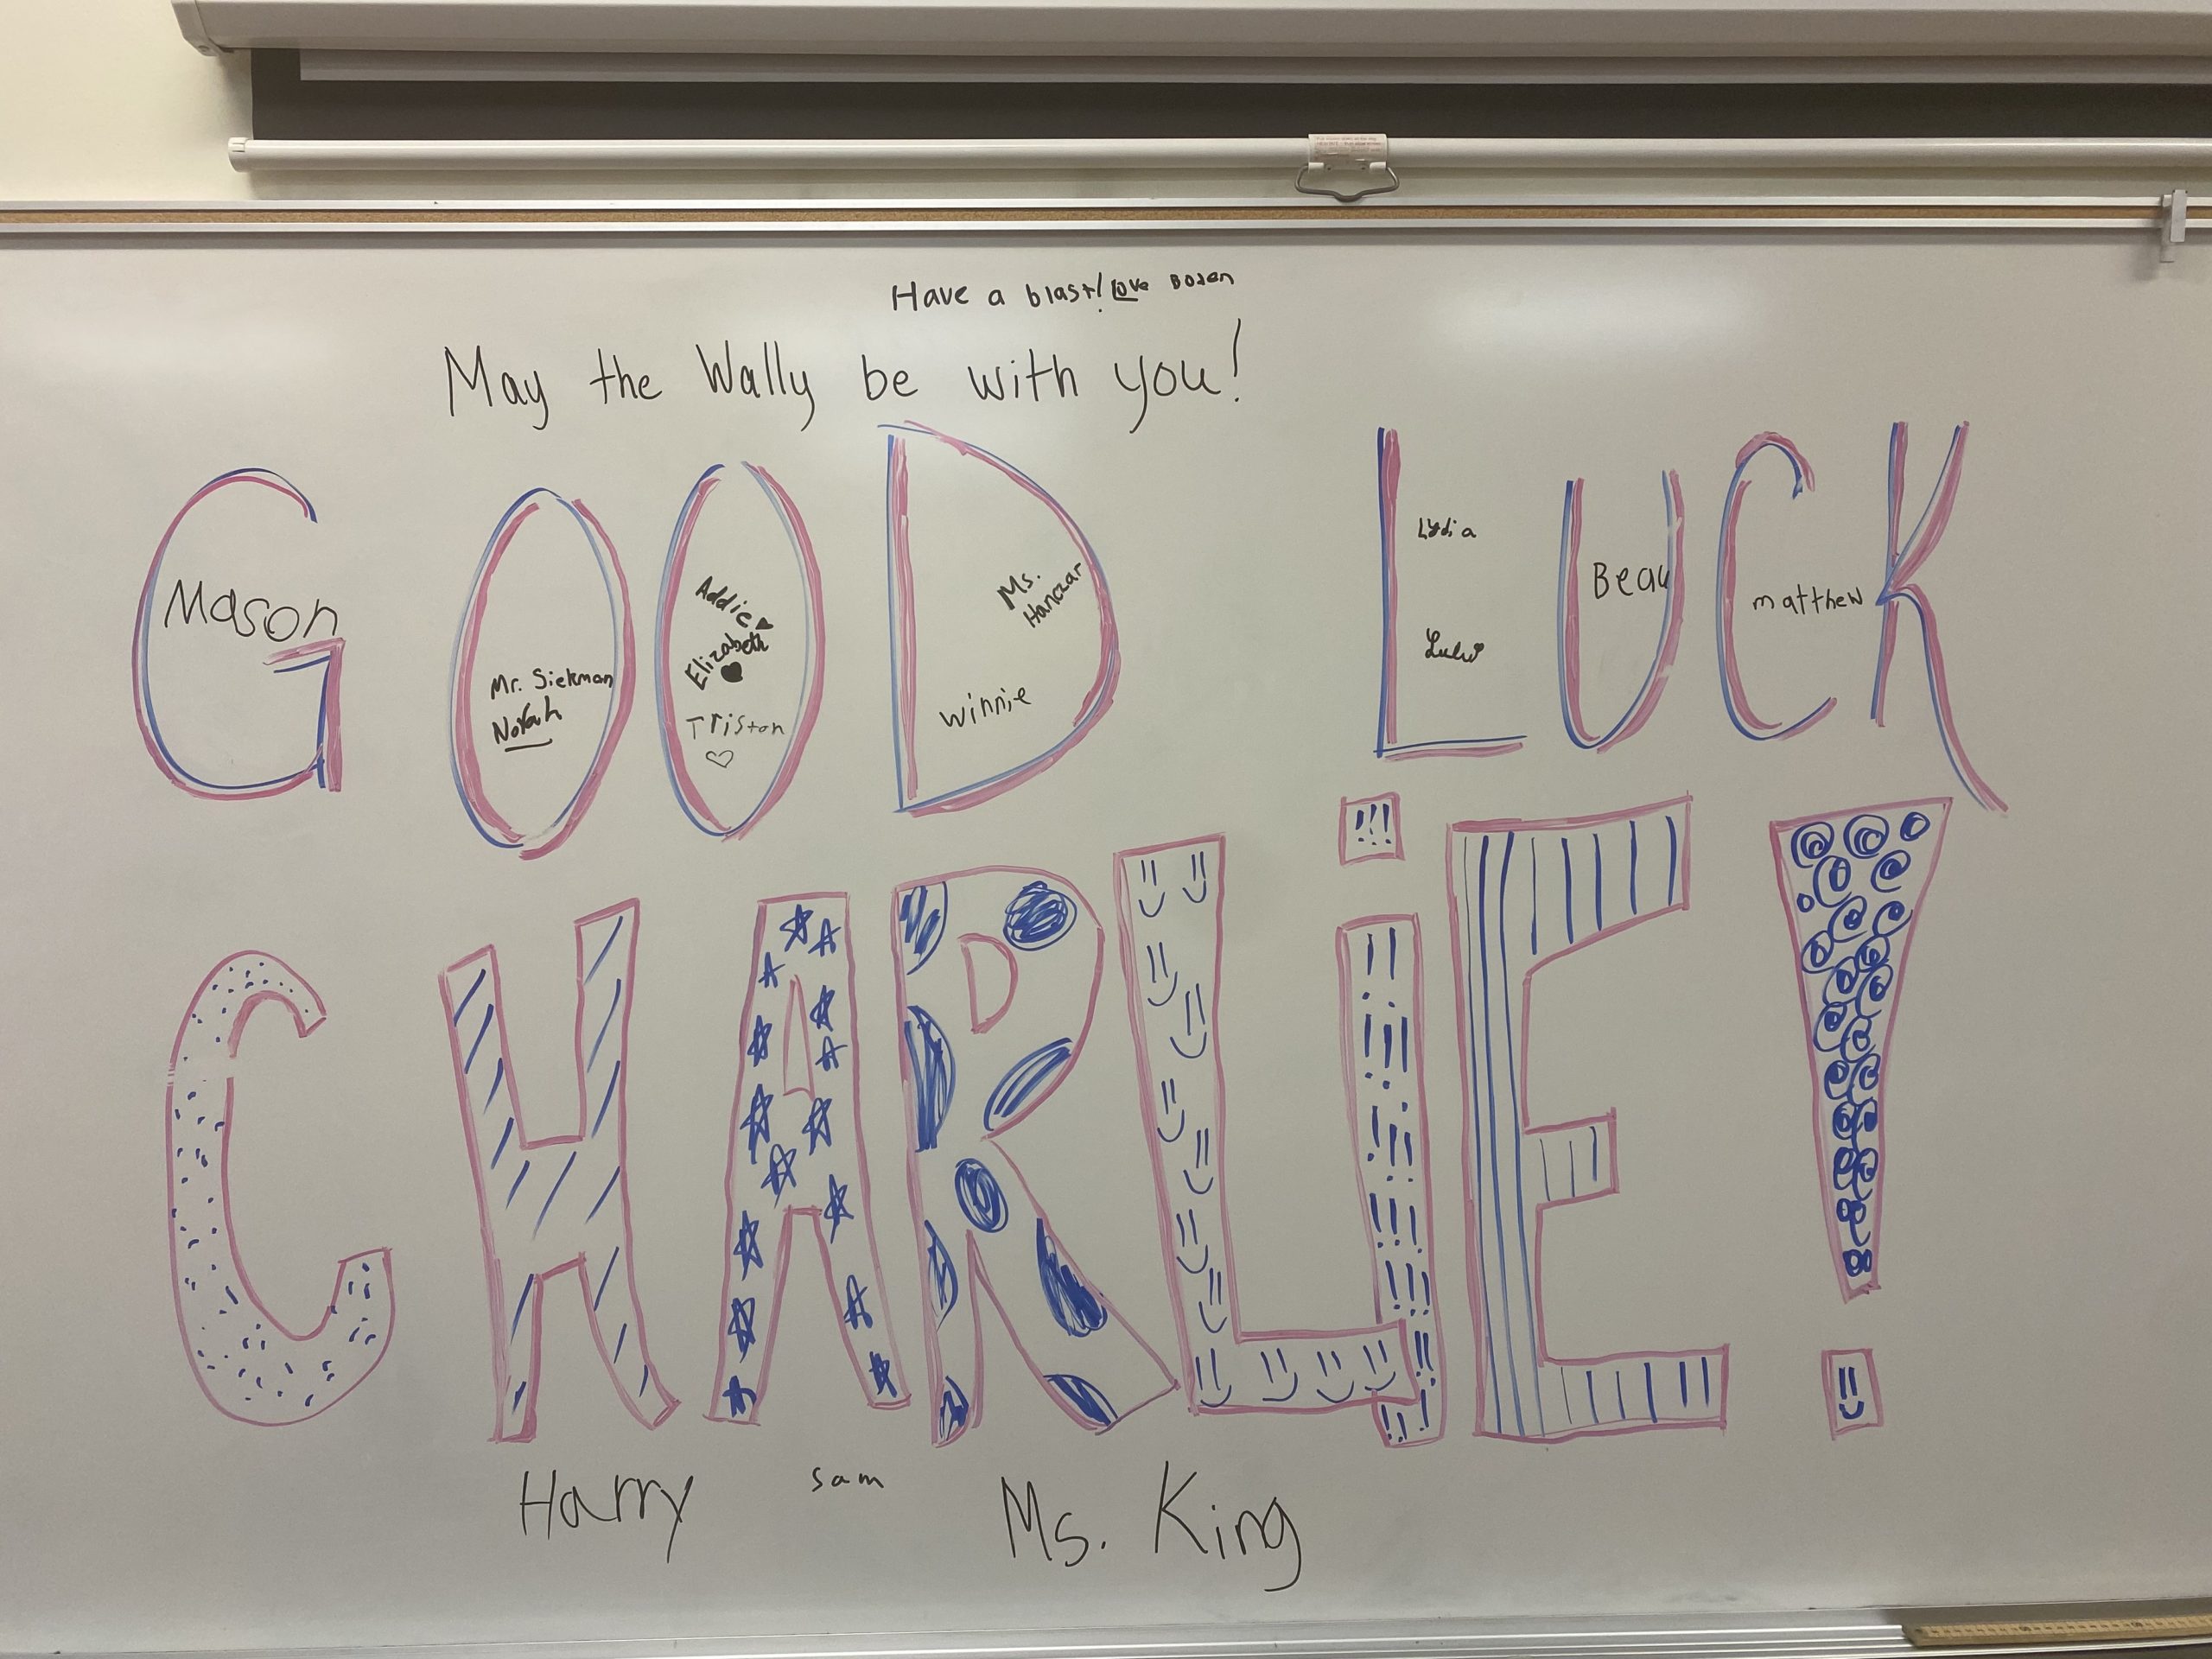 Have a blast! Love Boden
May the Wally be with you!
GOOD LUCK
Mason
Mr. Siekman
Norah
Addie
Elizabeth
Triston
Ms.
Hanczar
Winnie
Lydia
Lulu
Beau
matthew
CHARLiE!
Harry sam Ms. King